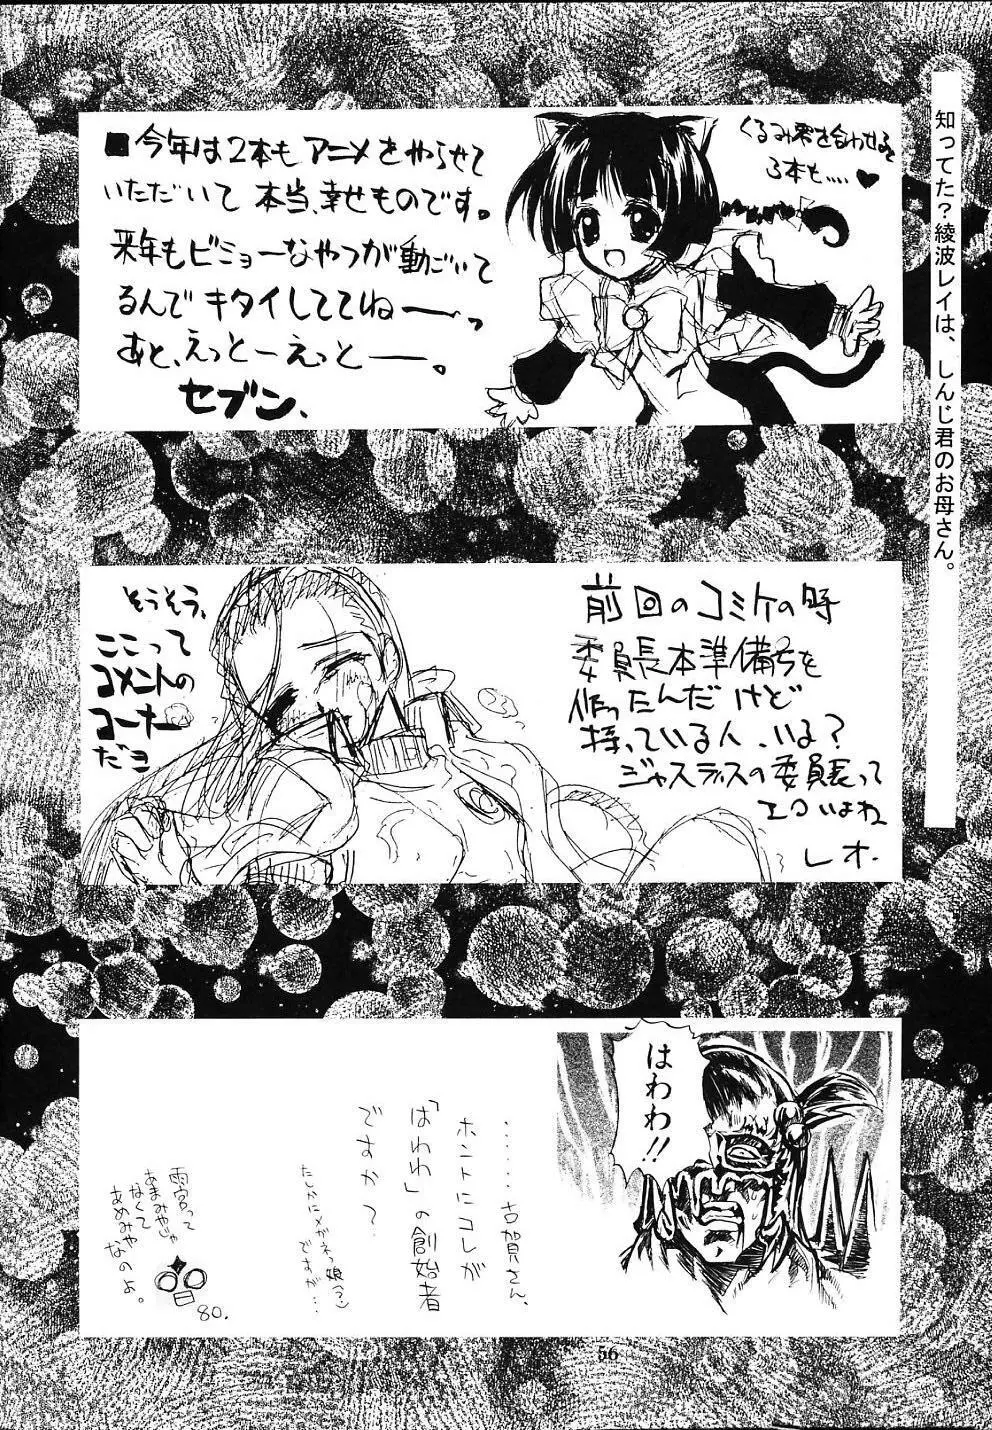 知ってた？綾波レイは、しんじ君のお母さん。
■今年は2本もアニメをやらせて
いただいて 本当、幸せものです。
来年もビミョーなやつが動ごいて
るんで キタイしててねー～っ
あと、えっとーえっとー――。
セブン、
くるみ
を合わせると
3本も‥‥♥
前回のコミケの時
委員長本準備号を
作ったんだけど
持っている人、いる？
ジャスティスの委員長って
エロいよね
レオ.
そうそう、
ここって
コメントの
コーナー
だヨ
はわわ!!
‥‥‥古賀さん、
ホントにコレが
「はわわ」の創始者
ですか？
たしかにメガネっ娘(？)
ですが…
雨宮って
あまみやじゃ
なくて
あめみや
なのよ。
80.
56